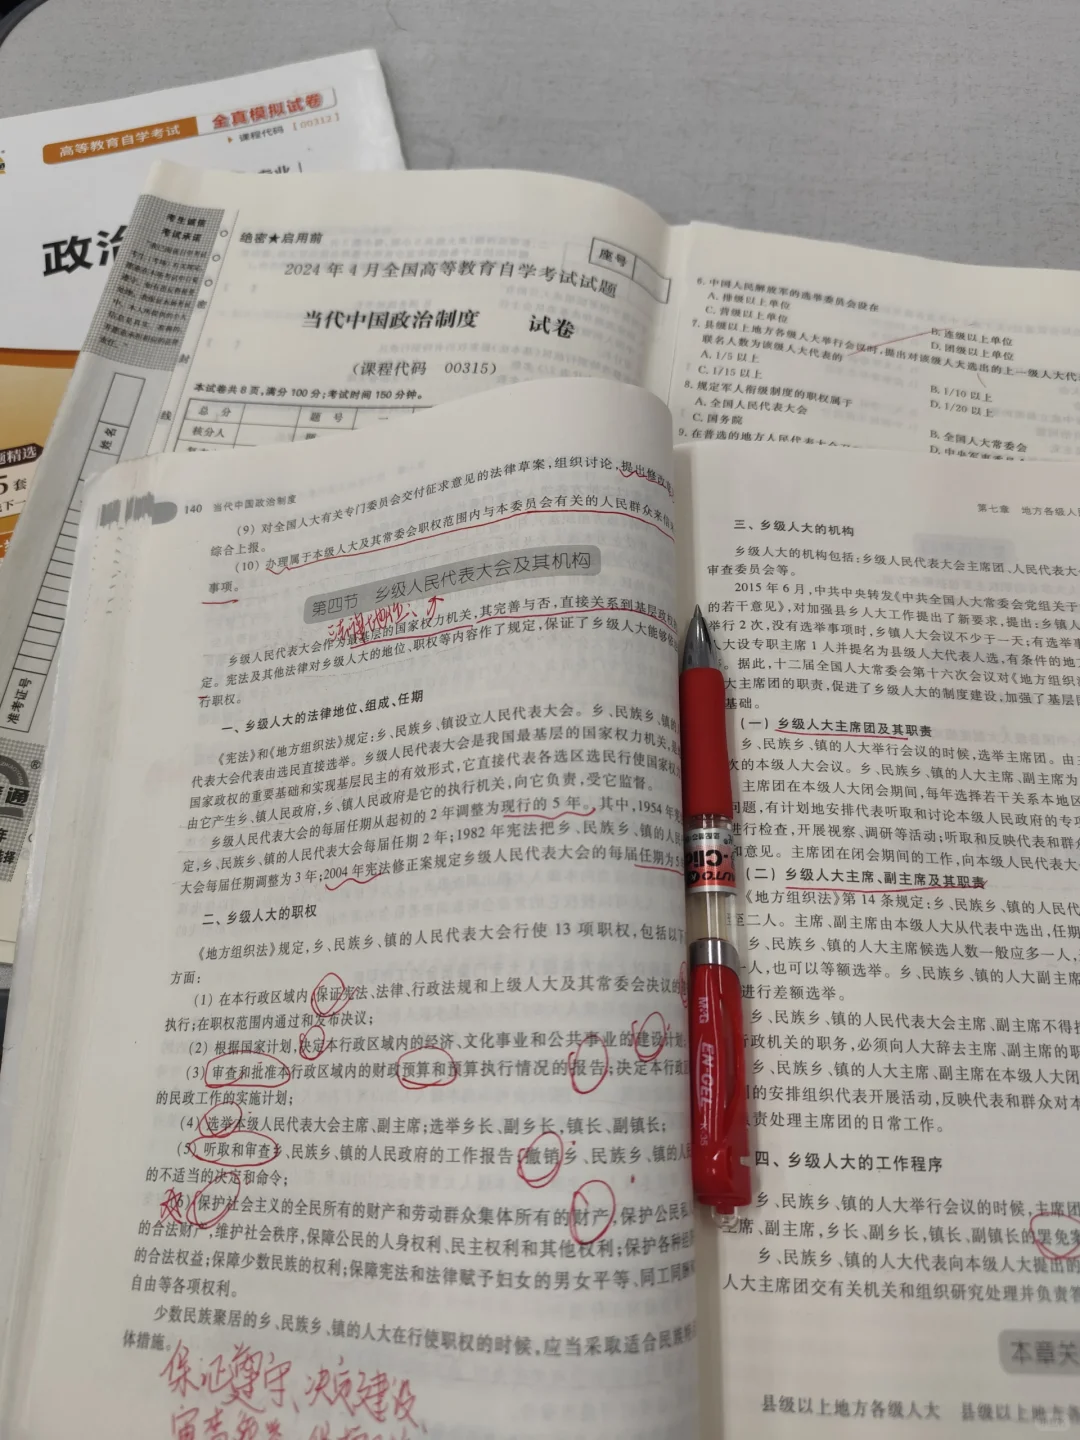 高等教育自学考试
全真模拟试卷
课程代码 [00312]
政治
考生诚信
考试承诺
绝密★启用前
座号
2024年4月全国高等教育自学考试试题
当代中国政治制度 试卷
(课程代码 00315)
本试卷共8页,满分100分;考试时间150分钟。
总分
题号
一
核分人
密
封
线
姓名
准考证号
6.中国人民解放军的选举委员会设在
A.排级以上单位
B.连级以上单位
C.营级以上单位
D.团级以上单位
7.县级以上地方各级人大举行会议时,提出对该级人大选出的上一级人大代
联名人数为该级人大代表的
A.1/5以上
B.1/10以上
C.1/15以上
D.1/20以上
8.规定军人衔级制度的职权属于
A.全国人民代表大会
B.全国人大常委会
C.国务院
9.在普选的地方
140 当代中国政治制度
(9)对全国人大有关专门委员会交付征求意见的法律草案,组织讨论,提出修改
综合上报。
(10)办理属于本级人大及其常委会职权范围内与本委员会有关的人民群众来信
事项。
第四节 乡级人民代表大会及其机构
乡级人民代表大会作为最基层的国家权力机关,其完善与否,直接关系到基层政权
定。宪法及其他法律对乡级人大的地位、职权等内容作了规定,保证了乡级人大能够
行职权。
一、乡级人大的法律地位、组成、任期
《宪法》和《地方组织法》规定:乡、民族乡、镇设立人民代表大会。乡、民族乡、镇的
代表大会代表由选民直接选举。乡级人民代表大会是我国最基层的国家权力机关,是
国家政权的重要基础和实现基层民主的有效形式,它直接代表各选区选民行使国家权
由它产生乡、镇人民政府,乡、镇人民政府是它的执行机关,向它负责,受它监督。
乡级人民代表大会的每届任期从起初的2年调整为现行的5年。其中,1954年
定,乡、民族乡、镇的人民代表大会每届任期2年;1982年宪法把乡、民族乡、镇的人民
大会每届任期调整为3年;2004年宪法修正案规定乡级人民代表大会的每届任期为5
二、乡级人大的职权
《地方组织法》规定,乡、民族乡、镇的人民代表大会行使13项职权,包括以下
方面:
(1)在本行政区域内,保证宪法、法律、行政法规和上级人大及其常委会决议的
执行;在职权范围内通过和发布决议;
(2)根据国家计划,决定本行政区域内的经济、文化事业和公共事业的建设计划;
(3)审查和批准本行政区域内的财政预算和预算执行情况的报告;决定本行政区
的民政工作的实施计划;
(4)选举本级人民代表大会主席、副主席;选举乡长、副乡长,镇长、副镇长;
(5)听取和审查乡、民族乡、镇的人民政府的工作报告;撤销乡、民族乡、镇的人民
的不适当的决定和命令;
(6)保护社会主义的全民所有的财产和劳动群众集体所有的财产,保护公民私
的合法财产,维护社会秩序,保障公民的人身权利、民主权利和其他权利;保护各种经
的合法权益;保障少数民族的权利;保障宪法和法律赋予妇女的男女平等、同工同酬
自由等各项权利。
少数民族聚居的乡、民族乡、镇的人大在行使职权的时候,应当采取适合民族
体措施。
保证遵守、决定建设、
第七章 地方各级人
三、乡级人大的机构
乡级人大的机构包括:乡级人民代表大会主席团、人民代表大
审查委员会等。
2015年6月,中共中央转发《中共全国人大常委会党组关于
的若干意见》,对加强县乡人大工作提出了新要求,提出:乡镇人
举行2次,没有选举事项时,乡镇人大会议不少于一天;有选举事
人大设专职主席1人并提名为县级人大代表人选,有条件的地方
。据此,十二届全国人大常委会第十六次会议对《地方组织
大主席团的职责,促进了乡级人大的制度建设,加强了基层
基础。
(一)乡级人大主席团及其职责
乡、民族乡、镇的人大举行会议的时候,选举主席团。由主
次的本级人大会议。乡、民族乡、镇的人大主席、副主席为
主席团在本级人大闭会期间,每年选择若干关系本地区
问题,有计划地安排代表听取和讨论本级人民政府的专项
进行检查,开展视察、调研等活动;听取和反映代表和群众
和意见。主席团在闭会期间的工作,向本级人民代表大
(二)乡级人大主席、副主席及其职责
《地方组织法》第14条规定:乡、民族乡、镇的人民代
至二人。主席、副主席由本级人大从代表中选出,任期
乡、民族乡、镇的人大主席候选人数一般应多一人,
一人,也可以等额选举。乡、民族乡、镇的人大副主席
进行差额选举。
乡、民族乡、镇的人民代表大会主席、副主席不得担
行政机关的职务,必须向人大辞去主席、副主席的职
乡、民族乡、镇的人大主席、副主席在本级人大闭
的安排组织代表开展活动,反映代表和群众对本
负责处理主席团的日常工作。
四、乡级人大的工作程序
乡、民族乡、镇的人大举行会议的时候,主席团
主席、副主席,乡长、副乡长,镇长、副镇长的罢免案
乡、民族乡、镇的人大代表向本级人大提出的
人大主席团交有关机关和组织研究处理并负责答
本章关
县级以上地方各级人大 县级以上地方各
M&G
EN-GEL